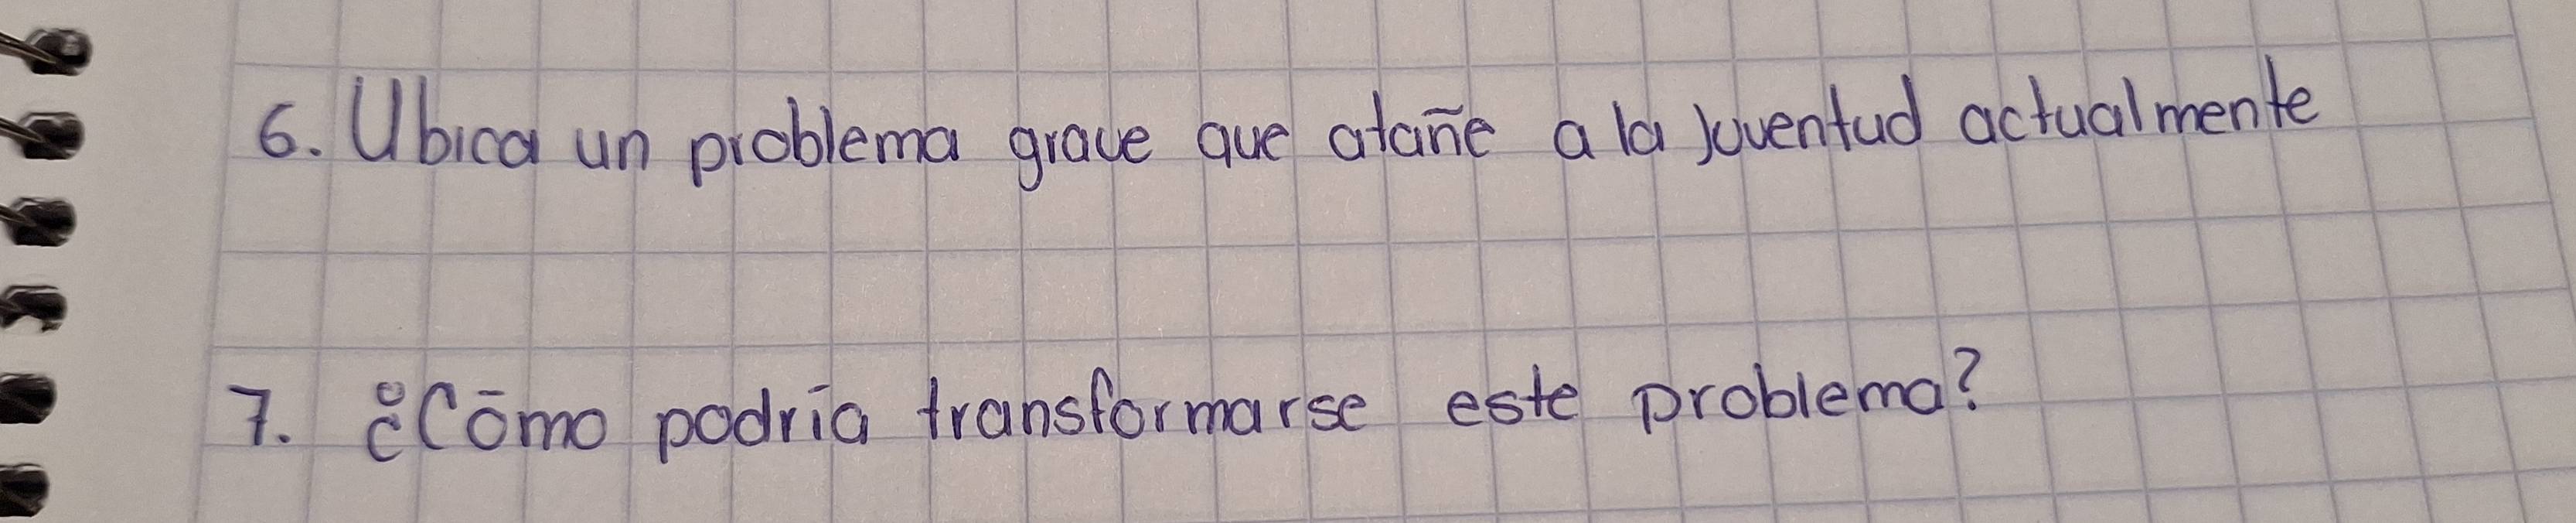 6. Ubica un problema grave que atañe a la juventud actualmente
7. ¿Cómo podría transformarse este problema?